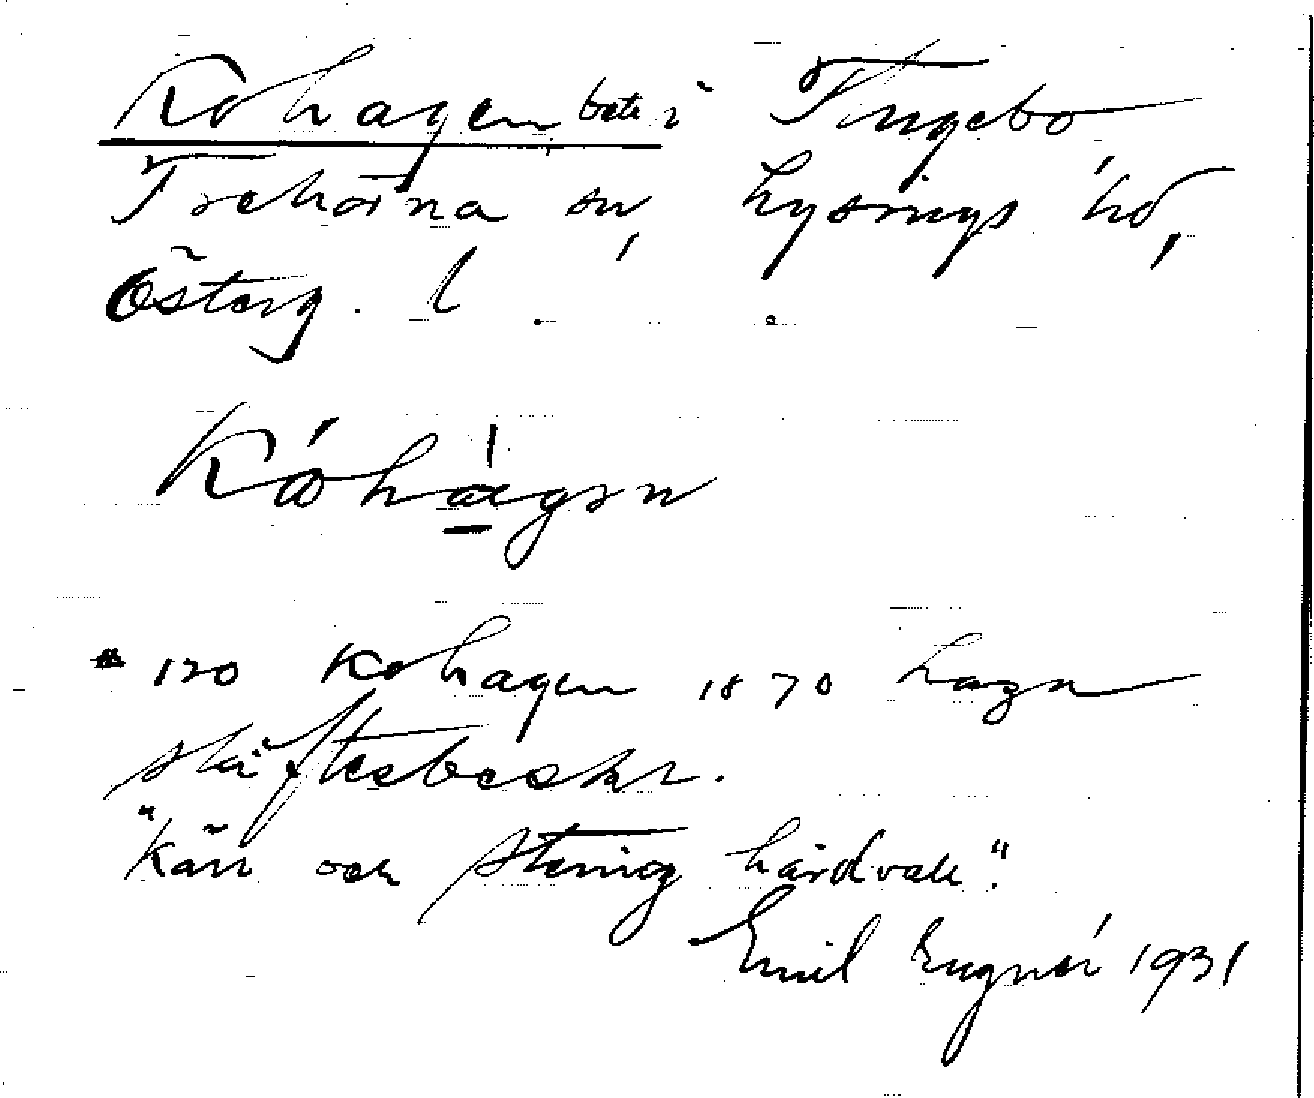 Kohagen bete i Tingebo
Trehörna sn, Lysings hd,
Österg. l.
Kóhágen
120 Kohagen 1870 Laga
skiftesbeskr.
"Kärr och stenig hårdvall".
Emil Engnér 1931